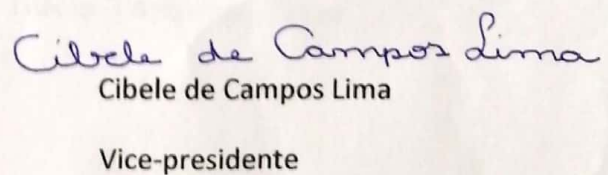 Cibele de Campos Lima
Cibele de Campos Lima
Vice-presidente